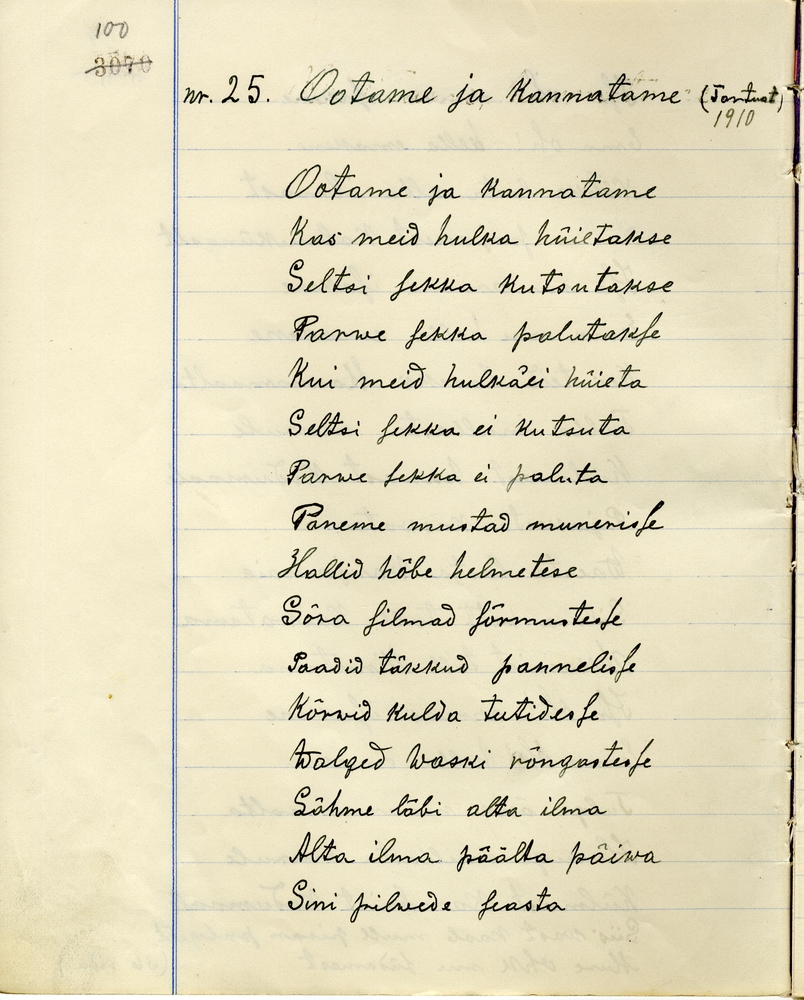 100
3070
nr. 25. Ootame ja kannatame (Tartust)
1910
Ootame ja kannatame
Kas meid hulka hüietakse
Seltsi sekka kutsutakse
Parwe sekka palutakse
Kui meid hulka ei hüieta
Seltsi sekka ei kutsuta
Parwe sekka ei paluta
Paneme mustad munerisse
Hallid hõbe helmetese
Sõra silmad sõrmustesse
Paadid täkkud pannelisse
Kõrwid kulda tutidesse
Walged waski rõngastesse
Lähme läbi alta ilma
Alta ilma päälta päiwa
Sini pilwede seasta